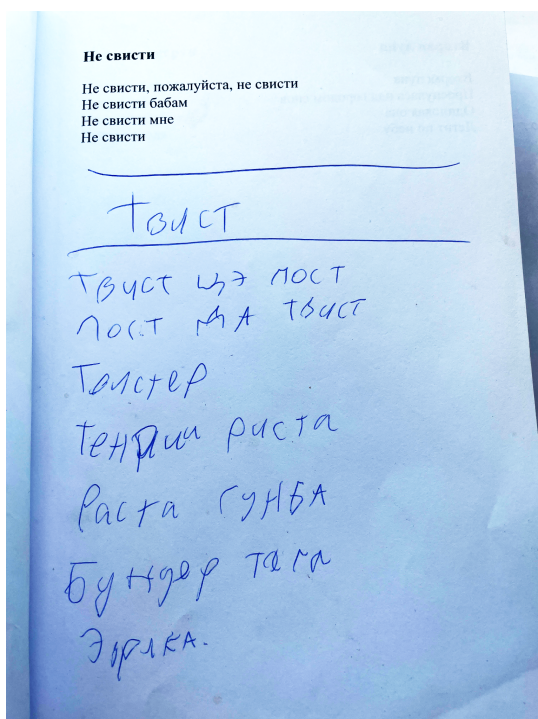 Не свисти
Не свисти, пожалуйста, не свисти
Не свисти бабам
Не свисти мне
Не свисти
Твист
Твист цэ пост
Пост да твист
Толстер
риста
Раста гунба
Бундер таги